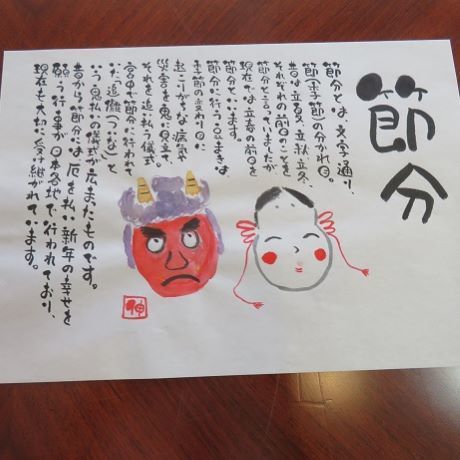 節分
節分とは、文字通り、
節(季節)の分かれ目。
昔は立春、立夏、立秋、立冬、
それぞれの前日のことを
節分と言っていましたが
現在では立春の前日を
節分といいます。
節分に行う豆まきは、
季節の変わり目に
起こりがちな病気や
災害を鬼に見立て、
それを追い払う儀式
宮中で節分に行われて
いた「追儺(ついな)」と
いう鬼払の儀式が広まったものです。
昔から節分には厄を払い新年の幸せを
願う行事が日本各地で行われており、
現在も大切に受け継がれています。